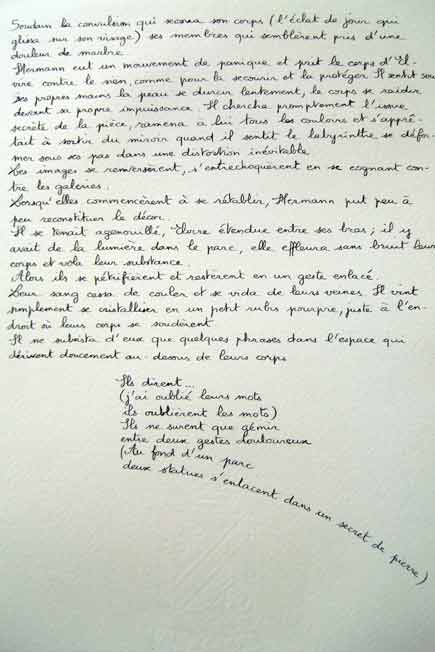 Soudain la convulsion qui secoua son corps (l'éclat de jour qui
glissa sur son visage) ses membres qui semblèrent pris d'une
douleur de marbre.
Hermann eut un mouvement de panique et prit le corps d'El-
vire contre le sien, comme pour la secourir et la protéger. Il sentit sous
ses propres mains la peau se durcir lentement, le corps se raidir
devant sa propre impuissance. Il chercha promptement l'issue
secrète de la pièce, ramena à lui tous les couloirs et s'apprê-
tait à sortir du miroir quand il sentit le labyrinthe se défor-
mer sous ses pas dans une distorsion inévitable.
Les images se renversèrent, s'entrechoquèrent en se cognant con-
tre les galeries.
Lorsqu'elles commencèrent à se rétablir, Hermann put peu à
peu reconstituer le décor.
Il se tenait agenouillé, Elvire étendue entre ses bras ; il y
avait de la lumière dans le parc, elle effleura sans bruit leur
corps et vola leur substance.
Alors ils se pétrifièrent et restèrent en un geste enlacé.
Leur sang cessa de couler et se vida de leurs veines. Il vint
simplement se cristalliser en un petit rubis pourpre, juste à l'en-
droit où leurs corps se soudèrent.
Il ne subsista d'eux que quelques phrases dans l'espace qui
dérivent doucement au-dessus de leurs corps
Ils dirent...
(j'ai oublié leurs mots
ils oublièrent les mots)
Ils ne surent que gémir
entre deux gestes douloureux
(Au fond d'un parc
deux statues s'enlacent dans un secret de pierre)